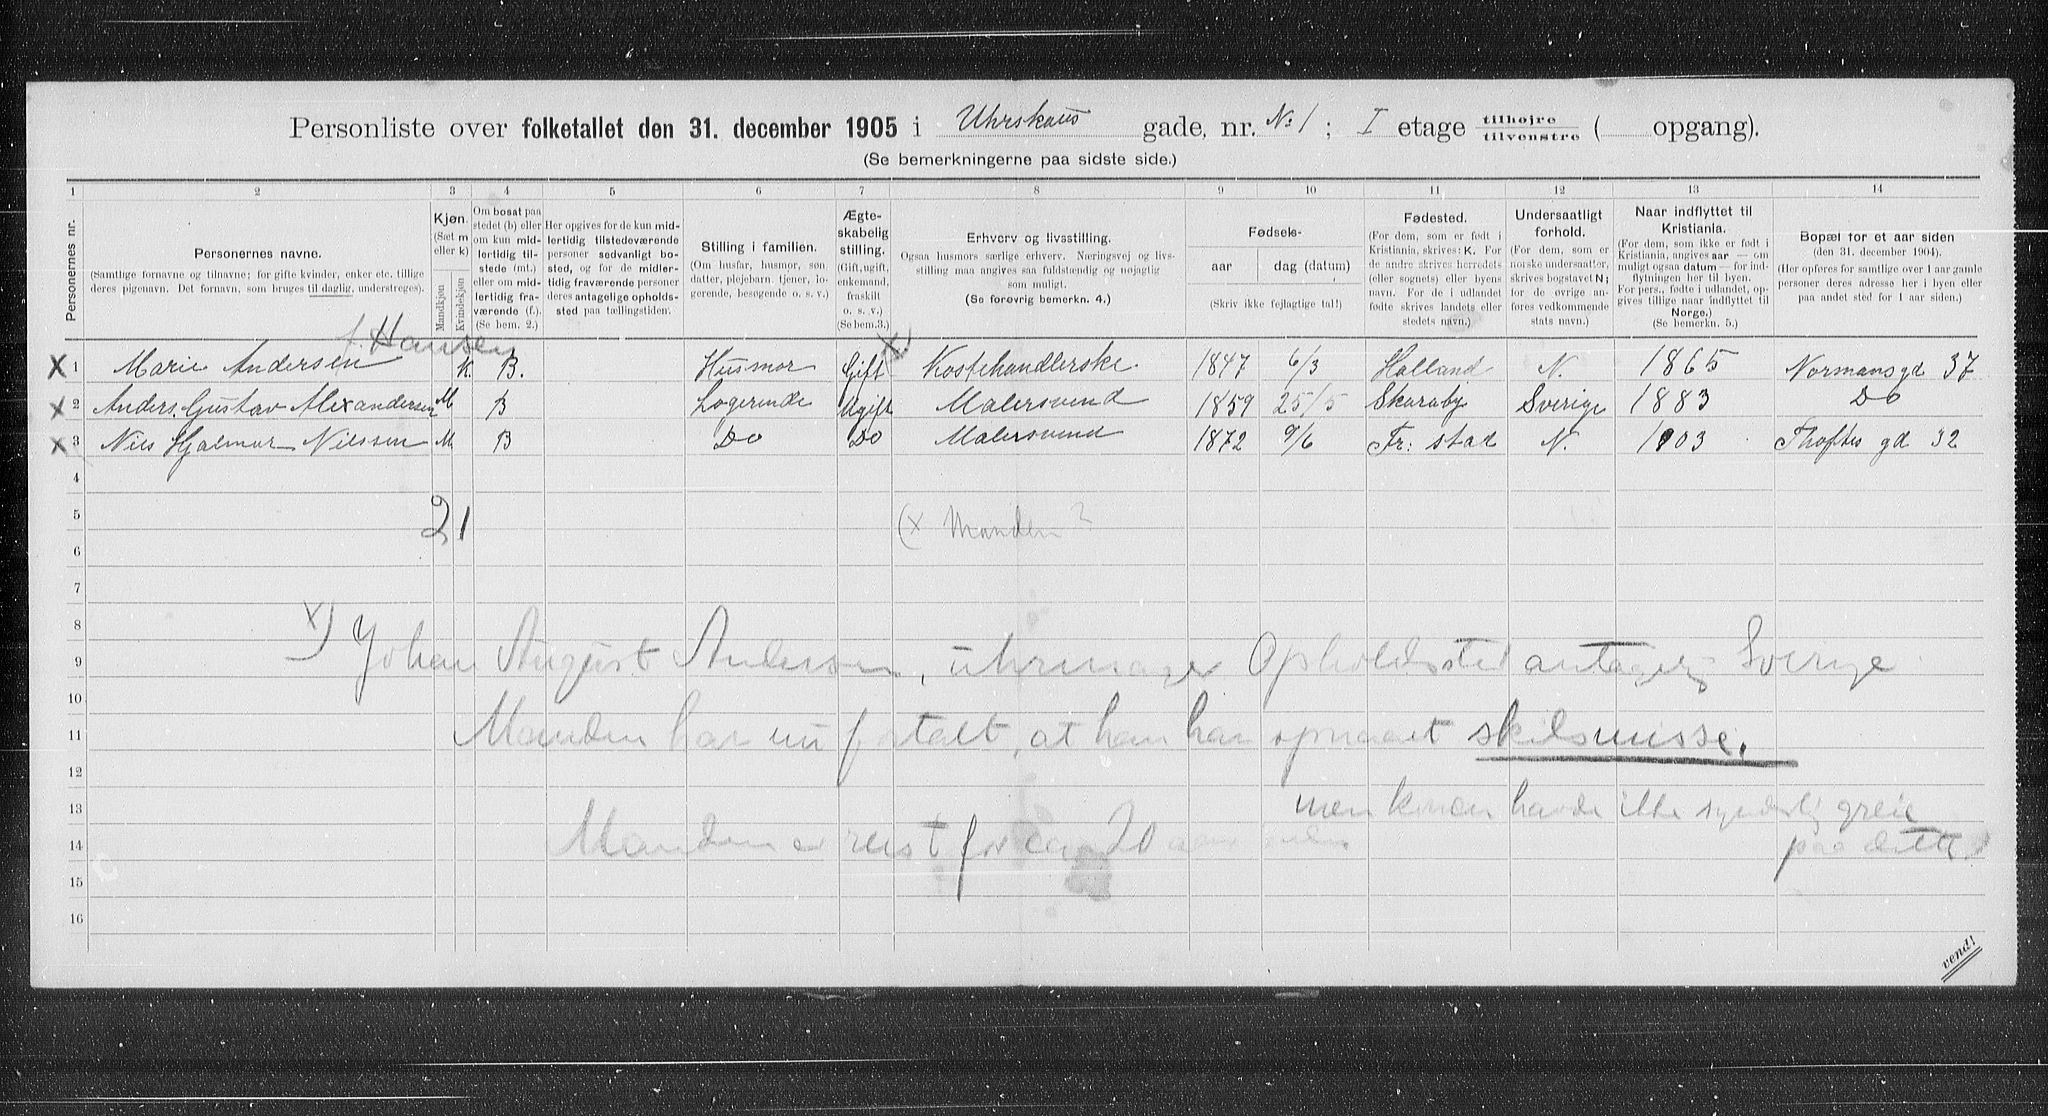 Personliste over folketallet den 31. december 1905 i Uhrskous gade, nr. No 1 ; I etage tilhøjre tilvenstre ( opgang).
(Se bemerkningerne paa sidste side.)
1 2 3 4 5 6 7 8 9 10 11 12 13 14
Personernes nr.
Personernes navne.
(Samtlige fornavne og tilnavne; for gifte kvinder, enker etc. tillige
deres pigenavn. Det fornavn, som bruges til daglig, understreges).
Kjøn.
(Sæt m
eller k)
Mandkjøn
Kvindekjøn
Om bosat paa
stedet (b) eller
om kun mid-
lertidig til-
stede (mt.)
eller om mid-
lertidig fra-
værende (f.).
(Se bem. 2.)
Her opgives for de kun mid-
lertidig tilstedeværende
personer sedvanligt bo-
sted, og for de midler-
tidig fraværende personer
deres antagelige opholds-
sted paa tællingstiden.
Stilling i familien.
(Om husfar, husmor, søn,
datter, plejebarn, tjener, lo-
gerende, besøgende o. s. v.)
Ægte-
skabelig
stilling.
(Gift, ugift,
enkemand,
fraskilt
o. s. v.)
(Se bem. 3.)
Erhverv og livsstilling.
Ogsaa husmors særlige erhverv. Næringsvej og livs-
stilling maa angives saa fuldstændig og nøjagtig
som muligt.
(Se forøvrig bemerkn. 4.)
Fødsels-
aar
dag (datum)
(Skriv ikke fejlagtige tal!)
Fødested.
(For dem, som er født i
Kristiania, skrives: K. For
de andre skrives herredets
(eller sognets) eller byens
navn. For de i udlandet
fødte skrives landets eller
stedets navn.)
Undersaatligt
forhold.
(For dem, som er
norske undersaatter,
skrives bogstavet N;
for de øvrige an-
føres vedkommende
stats navn.)
Naar indflyttet til
Kristiania.
(For dem, som ikke er født i
Kristiania, angives aar — om
muligt ogsaa datum — for ind-
flytningen her til byen.
For pers., fødte i udlandet, op-
gives tillige naar indflyttet til
Norge.)
(Se bemerkn. 5.)
Bopæl for et aar siden
(den 31. december 1904).
(Her opføres for samtlige over 1 aar gamle
personer deres adresse her i byen eller
paa andet sted for 1 aar siden.)
f. Hansen x)
X 1 Marie Andersen K. B. Husmor Gift Kostehandlerske. 1847 6/3 Holland N. 1865 Normansgd 37
X 2 Anders. Gustav Alexandersen M B Logerende Ugift Malersvend 1859 25/5 Skaraby Sverige 1883 Do
X 3 Nils Hjalmar Nilssen M B Do Do Malersvend 1872 9/6 Fr: stad N. 1903 Thoftes gd 32
4
5 2 1 (x Manden ?
6
7
8
9 x) Johan August Andersen, uhrmager Opholdssted antagelig Sverige
10
11 Manden har nu fortalt, at han har opnaaet skilsmisse.
12
13 men konen havde ikke synderlig greie
14 Manden er reist for ca. 20 aar siden paa dette!
15
16
vend!